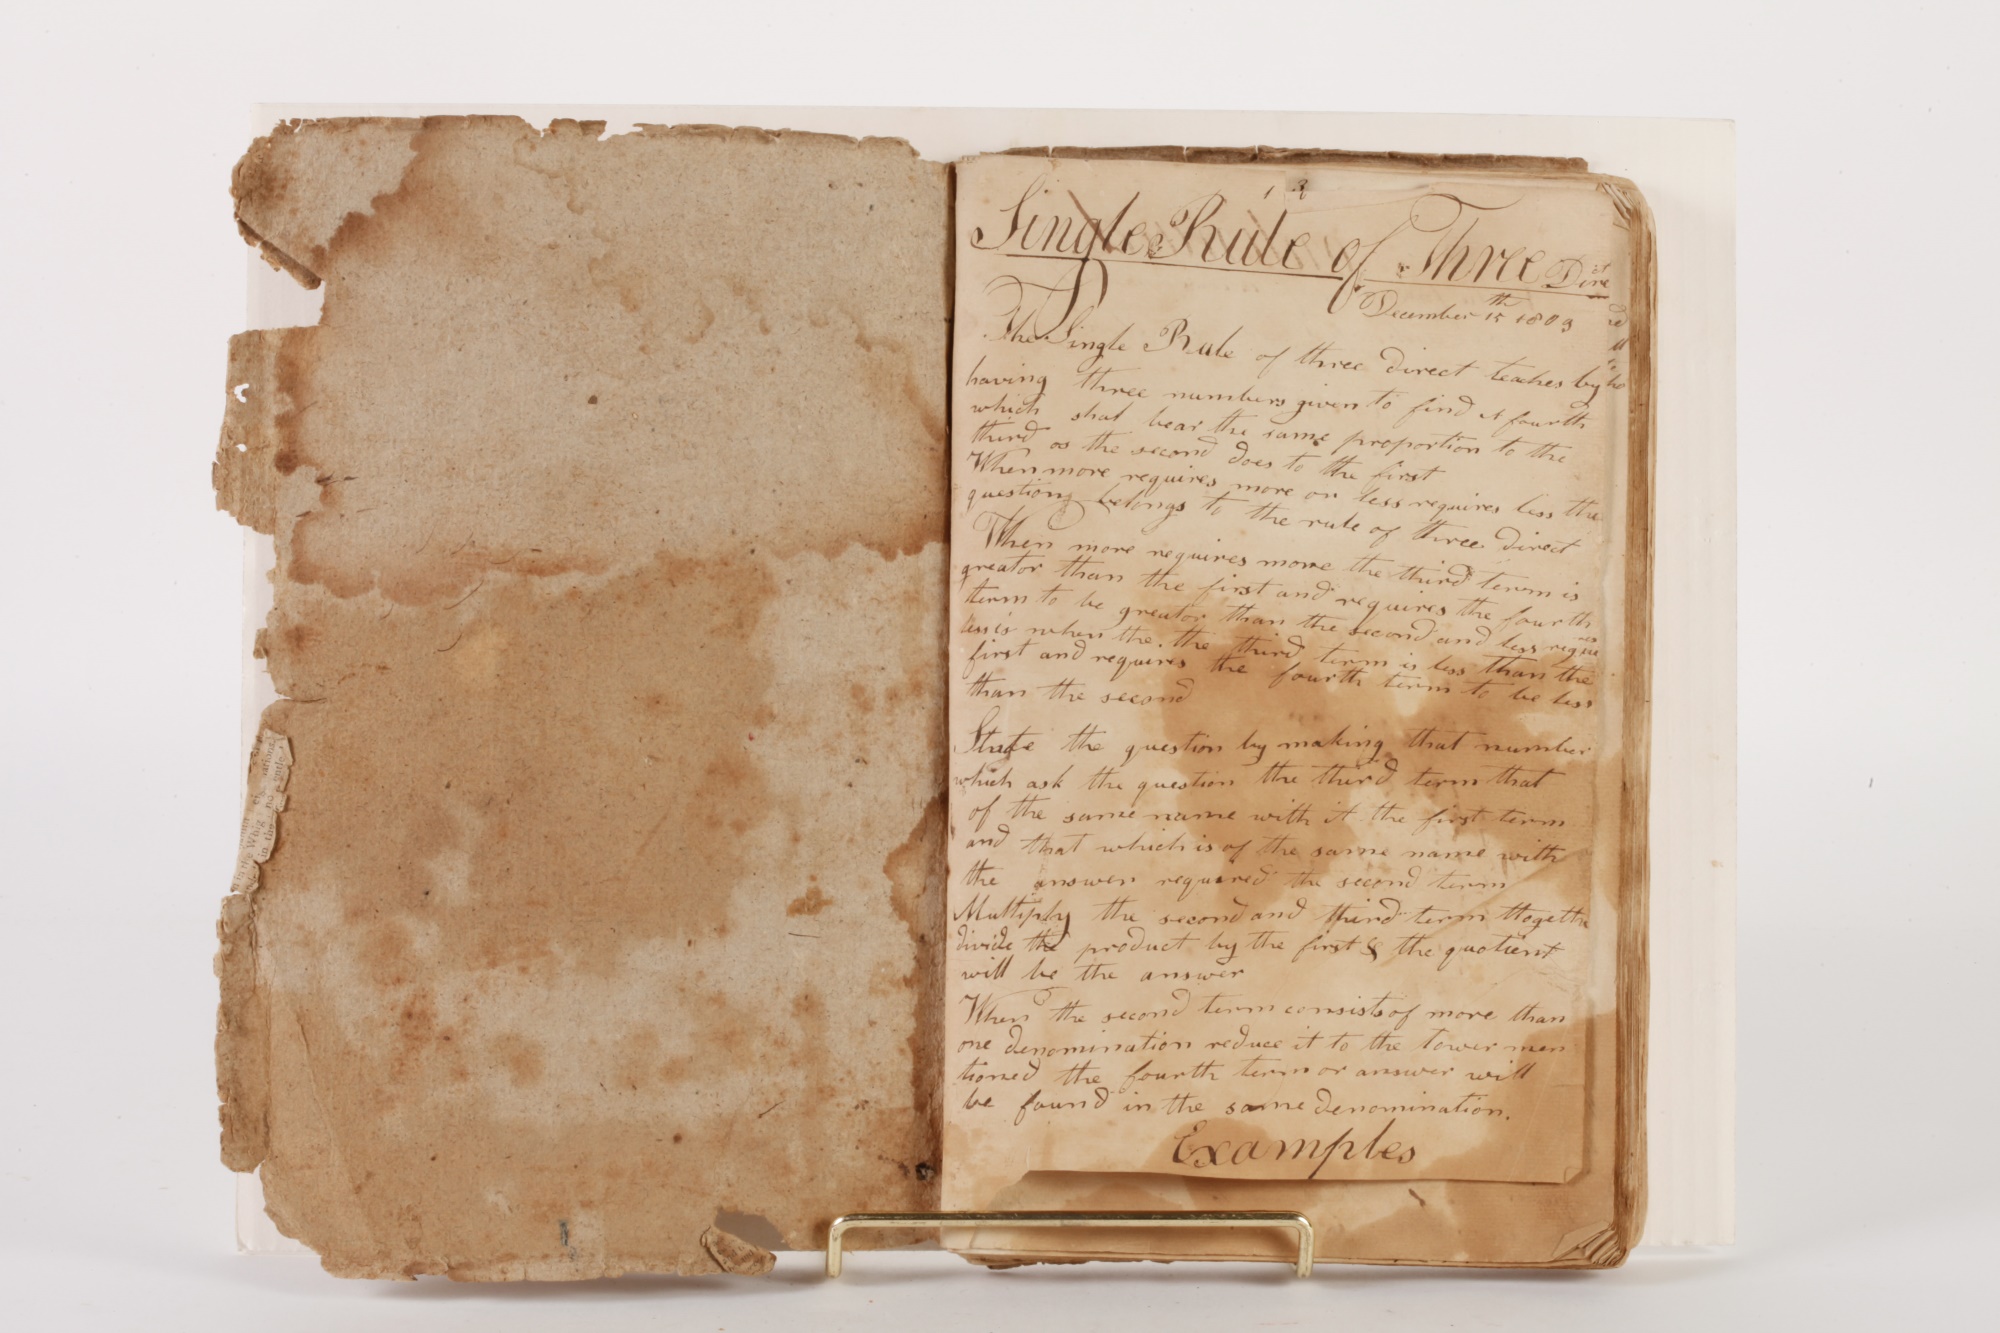 Single Rule of Three Dire ct
December 15 th 1803
The Single Rule of three direct teaches by
having three numbers given to find A fourth
which shal bear the same proportion to the
third as the second does to the first
When more requires more or less requires less the
questiong belongs to the rule of three direct
When more requires more the third term is
greator than the first and requires the fourth
term to be greator than the second and less requi
less is when the the third term is less than the
first and requires the fourth term to be less
than the second
State the question by making that number
which ask the question the third term that
of the same name with it the first term
and that which is of the same name with
the answer required the second term
Multiply the second and third term ttogethe
divide the product by the first & the quotient
will be the answer
When the second term consists of more than
one denomination reduce it to the lower men
tioned the fourth term or answer will
be found in the same denomination.
Examples